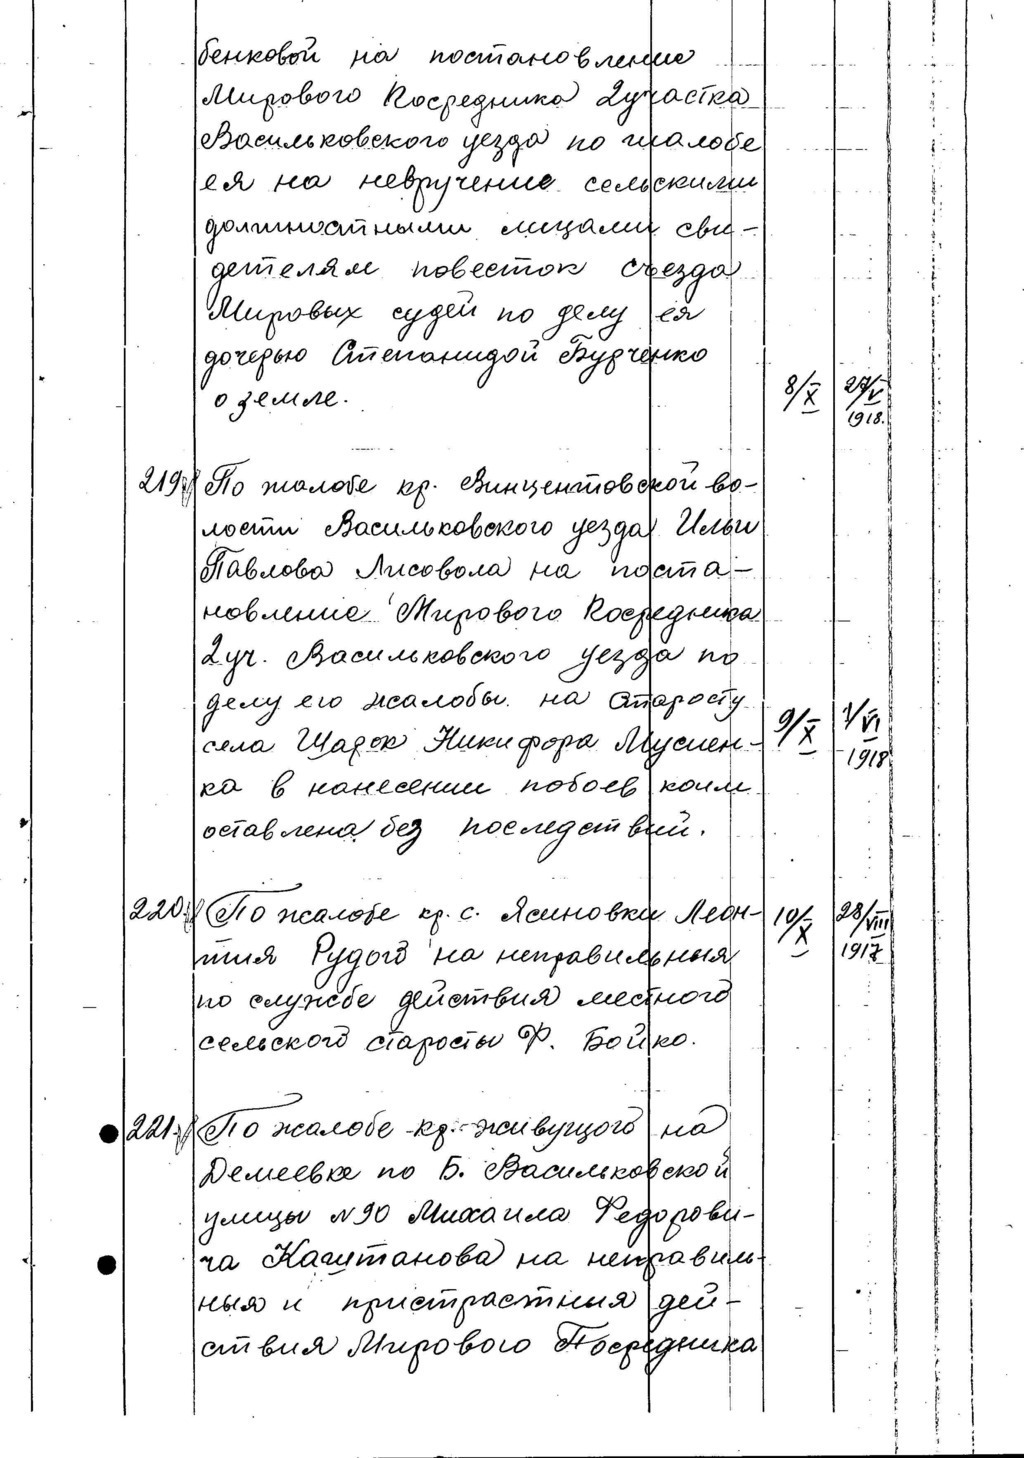 бенковой на постановление
Мирового Посредника 2 участка
Васильковского уезда по жалобе
ея на невручение сельскими
должностными лицами сви-
детелям повесток съезда
Мировых судей по делу ея
дочерью Степанидой Бурченко
о земле. 8/X 27/V 1918.
219. По жалобе кр. Винцентовской во-
лости Васильковского уезда Ильи
Павлова Лисовола на поста-
новление Мирового Посредника
2 уч. Васильковского уезда по
делу его жалобы на старосту
села Шарок Никифора Мусиен-
ка в нанесении побоев коим
оставлена без последствий. 9/X 1/VI 1918
220. По жалобе кр. с. Ясиновки Леон- 10/X 28/VIII 1917
тия Рудого на неправильныя
по службе действия местного
сельского старосты Ф. Бойко.
221. По жалобе кр. живущого на
Демеевке по Б. Васильковской
улицы №90 Михаила Федорови-
ча Каштанова на неправиль-
ныя и пристрастныя дей-
ствия Мирового Посредника